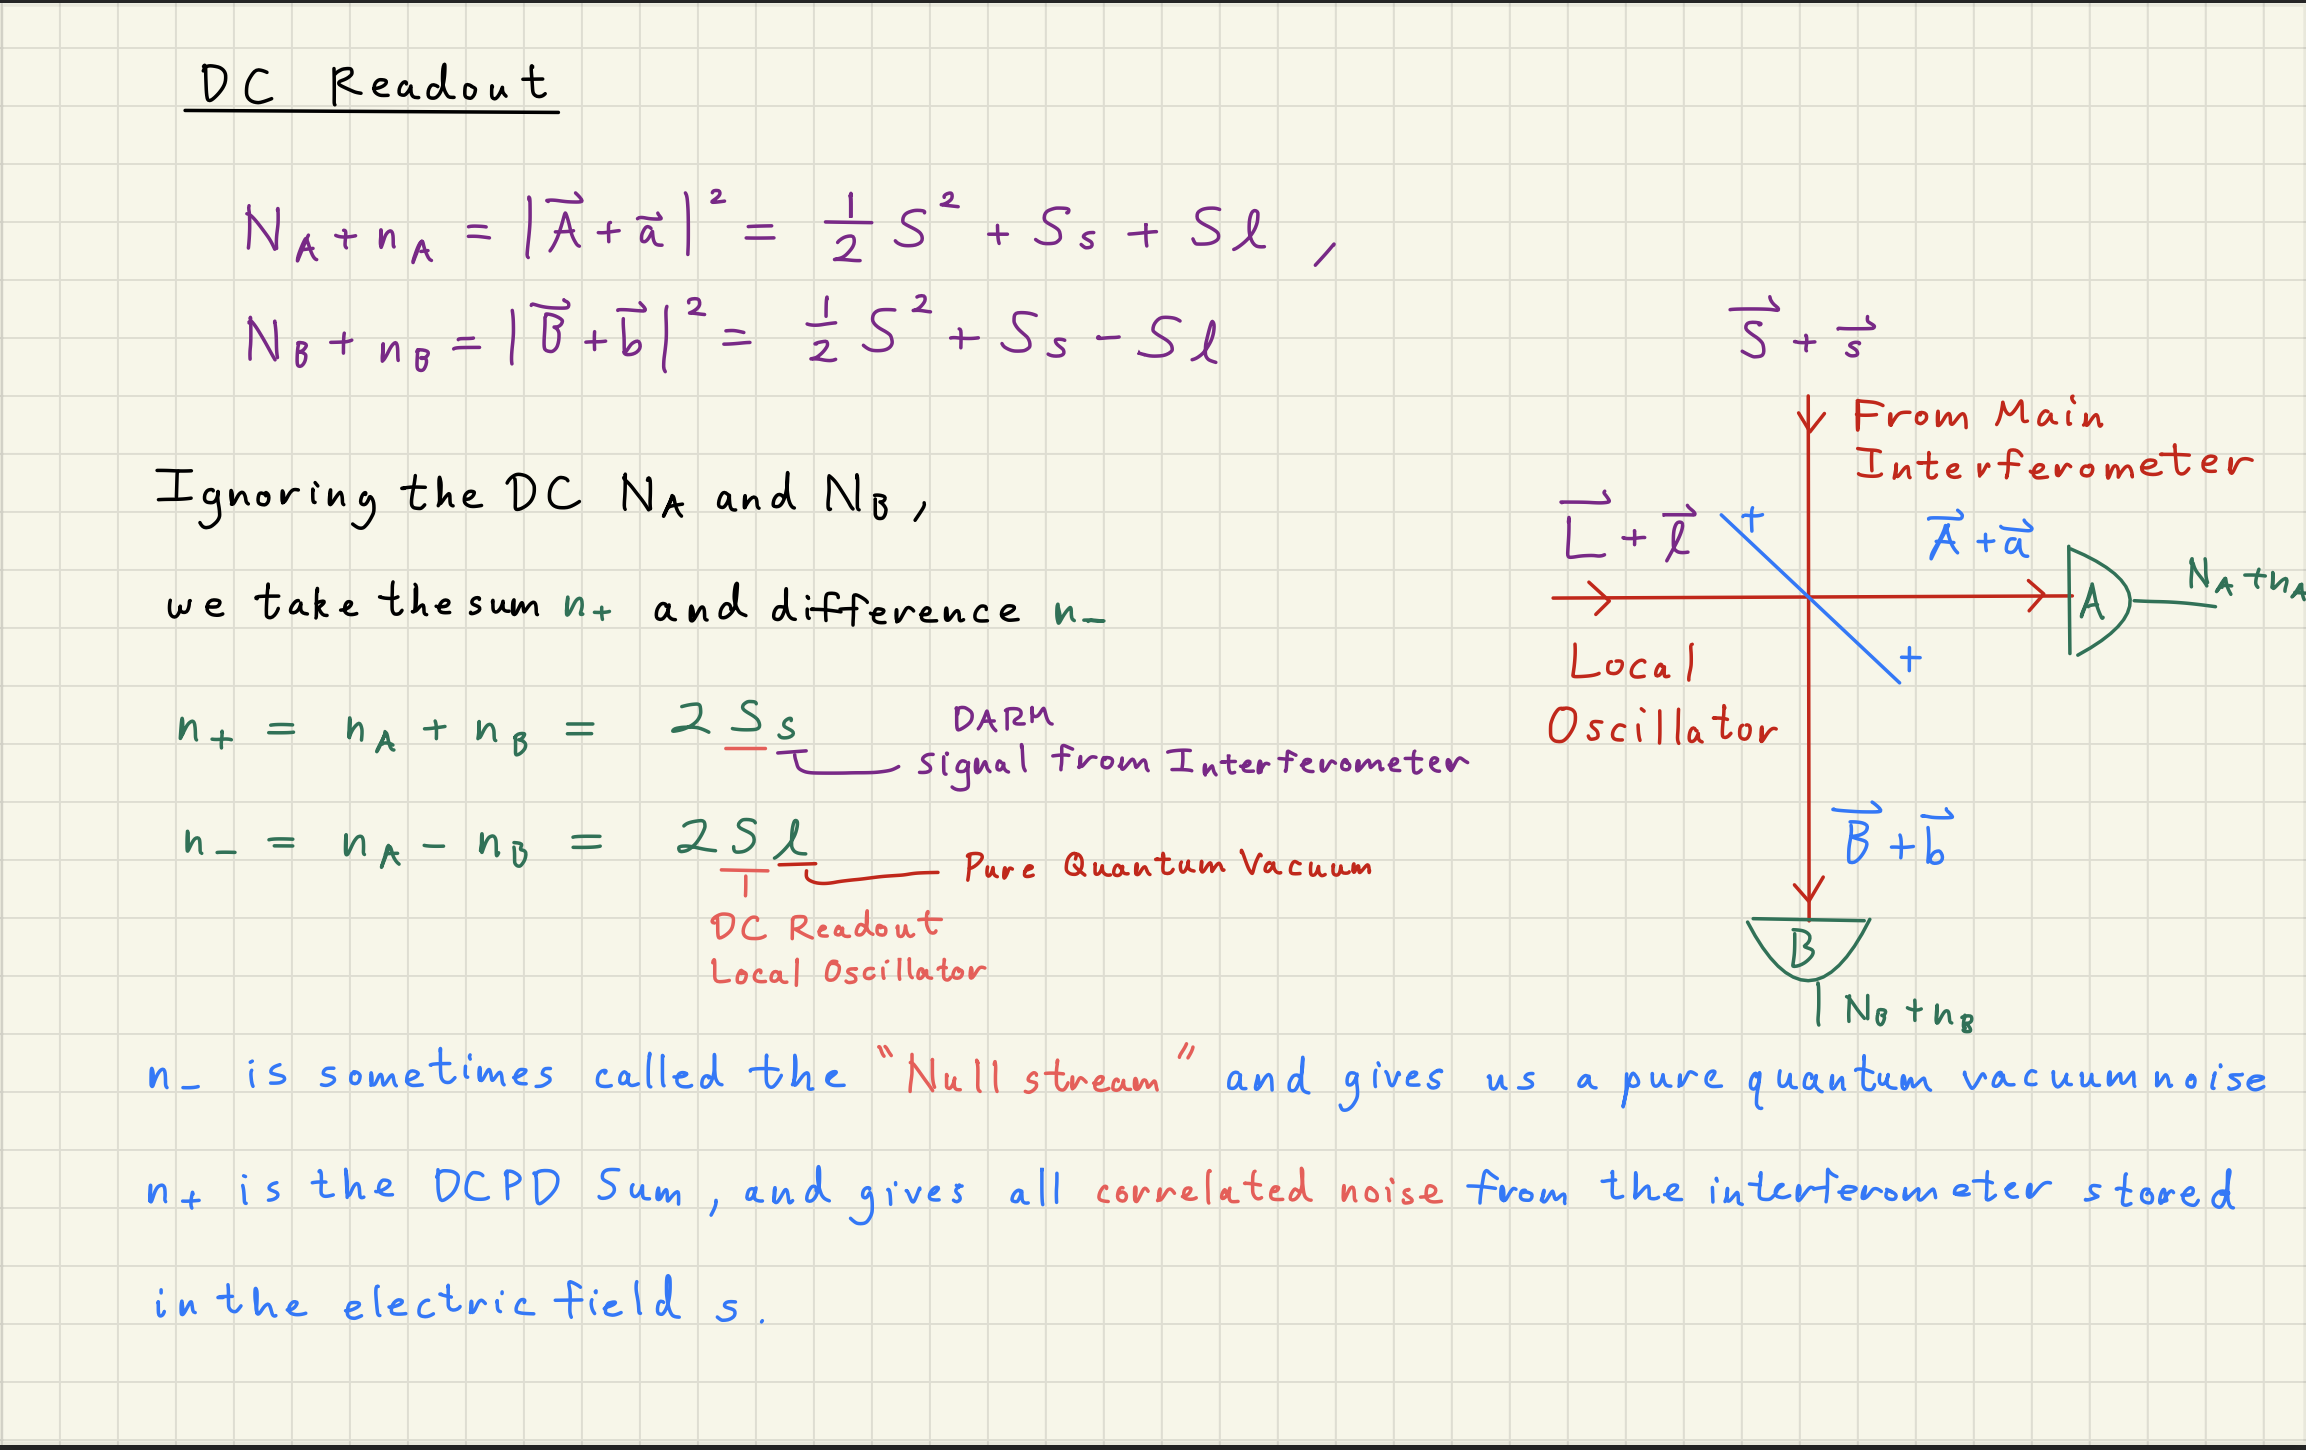 DC Readout
N_A + n_A = |A⃗ + a⃗|² = 1/2 S² + Ss + Sℓ ,
N_B + n_B = |B⃗ + b⃗|² = 1/2 S² + Ss - Sℓ
S⃗ + s⃗
From Main
Interferometer
Ignoring the DC N_A and N_B,
L⃗ + ℓ⃗
+
A⃗ + a⃗
A
N_A + n_A
we take the sum n_+ and difference n_-
+
Local
Oscillator
n_+ = n_A + n_B = 2Ss
DARM
signal from Interferometer
n_- = n_A - n_B = 2Sℓ
Pure Quantum Vacuum
DC Readout
Local Oscillator
B⃗ + b⃗
B
N_B + n_B
n_- is sometimes called the "Null stream" and gives us a pure quantum vacuum noise
n_+ is the DCPD Sum, and gives all correlated noise from the interferometer stored
in the electric field s.